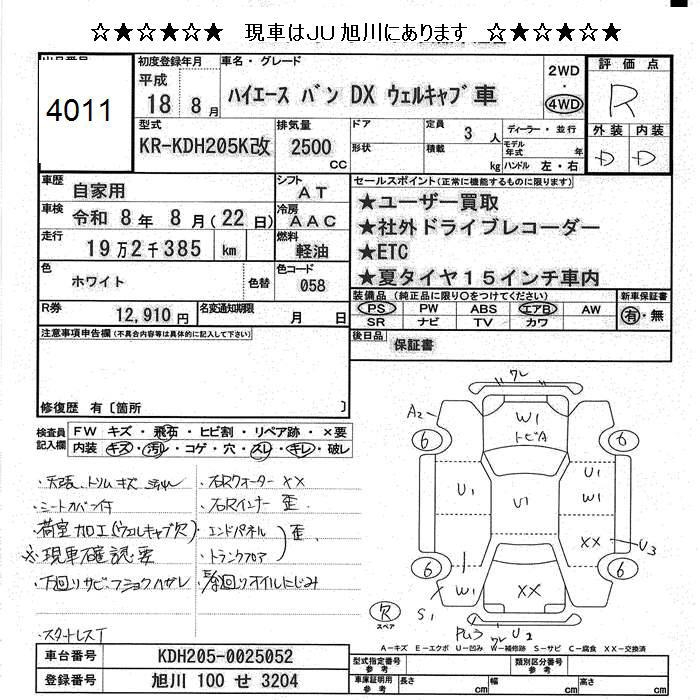 ☆★☆★☆★ 現車はJU旭川にあります ☆★☆★☆★
4011
初度登録年月
平成
18 8月
車名・グレード
ハイエース バン DX ウェルキャブ 車
2WD
・
4WD
評価点
R
外装 内装
D D
型式
KR-KDH205K改
排気量
2500
CC
ドア
形状
定員
3 人
積載
kg
ディーラー・並行
モデル年式 年
ハンドル 左・右
車歴
自家用
シフト
AT
車検
令和 8年 8月(22日)
冷房
AAC
走行
19万2千385 km
燃料
軽油
色
ホワイト
色替
色コード
058
R券
12,910円
名変通知期限
月 日
セールスポイント(正常に機能するものに限ります)
★ユーザー買取
★社外ドライブレコーダー
★ETC
★夏タイヤ15インチ車内
装備品(純正品に限り○をつけてください)
PS PW ABS エアB AW
SR ナビ TV カワ
新車保証書
有・無
後日品
保証書
注意事項申告欄(不具合内容等は具体的に記入して下さい)
修復歴 有〔箇所 〕
検査員
記入欄
FW キズ・飛石・ヒビ割・リペア跡・×要
内装 キズ・汚レ・コゲ・穴・スレ・キレ・破レ
・天張、トリムキズ
・シートカバー付
・荷室加工(ウェルキャブ欠)
※現車確認要
・下回りサビ・フショクハガレ
・スタットレスT
・右Rクォーター XX
・右Rインナー 歪
・エンドパネル
・トランクフロア 歪
回りオイルにじみ
ワレ
A2
W1
トビA
6 6
U1
U1
U1
W1
XX
U3
6 6
W1
XX
S1
欠
スペア
PU3 ワレ U2
A-キズ E-エクボ U-凹み W-補修跡 S-サビ C-腐食 XX-交換済
車台番号
KDH205-0025052
登録番号
旭川 100 せ 3204
型式指定番号
参考
類別区分番号
参考
車庫証明用
参考
長さ cm
幅 cm
高さ cm